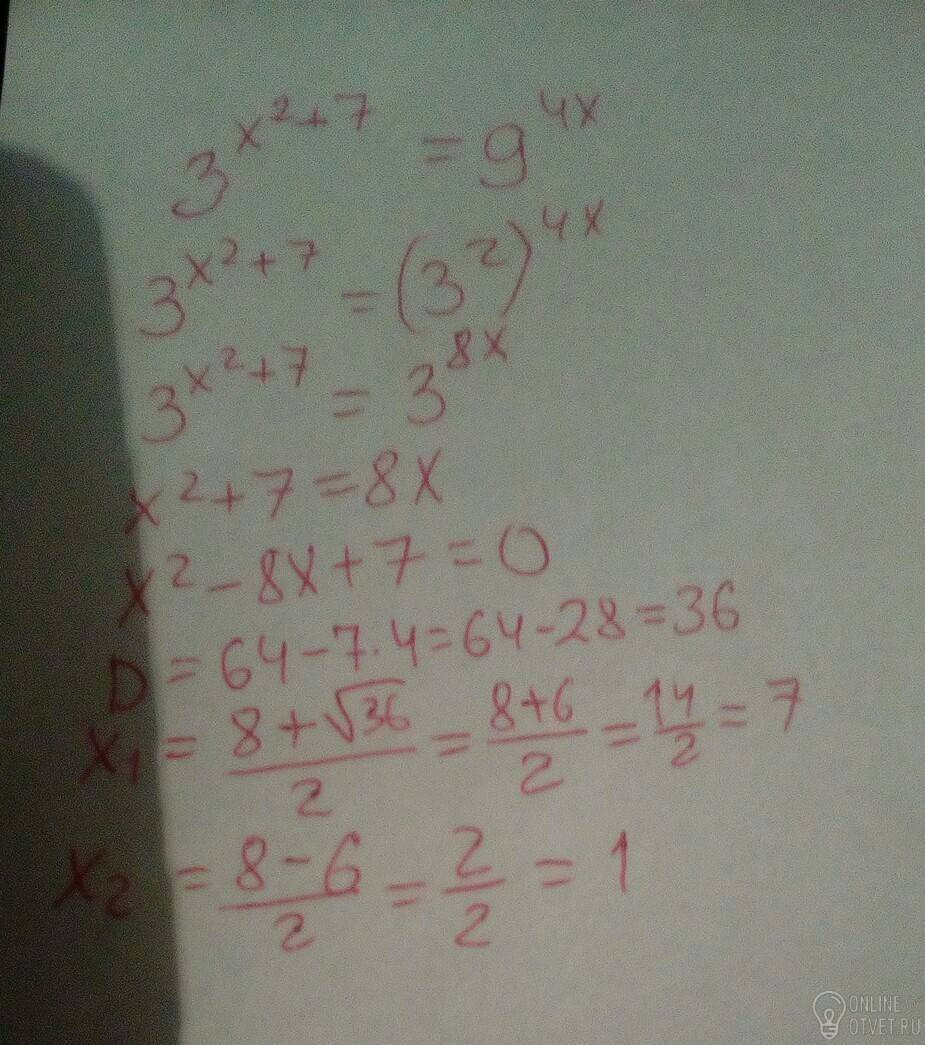 3^{x^2+7} = 9^{4x}
3^{x^2+7} = (3^2)^{4x}
3^{x^2+7} = 3^{8x}
x^2+7=8x
x^2-8x+7=0
D=64-7·4=64-28=36
x_1 = \frac{8+\sqrt{36}}{2} = \frac{8+6}{2} = \frac{14}{2} = 7
x_2 = \frac{8-6}{2} = \frac{2}{2} = 1
ONLINE
OTVET.RU